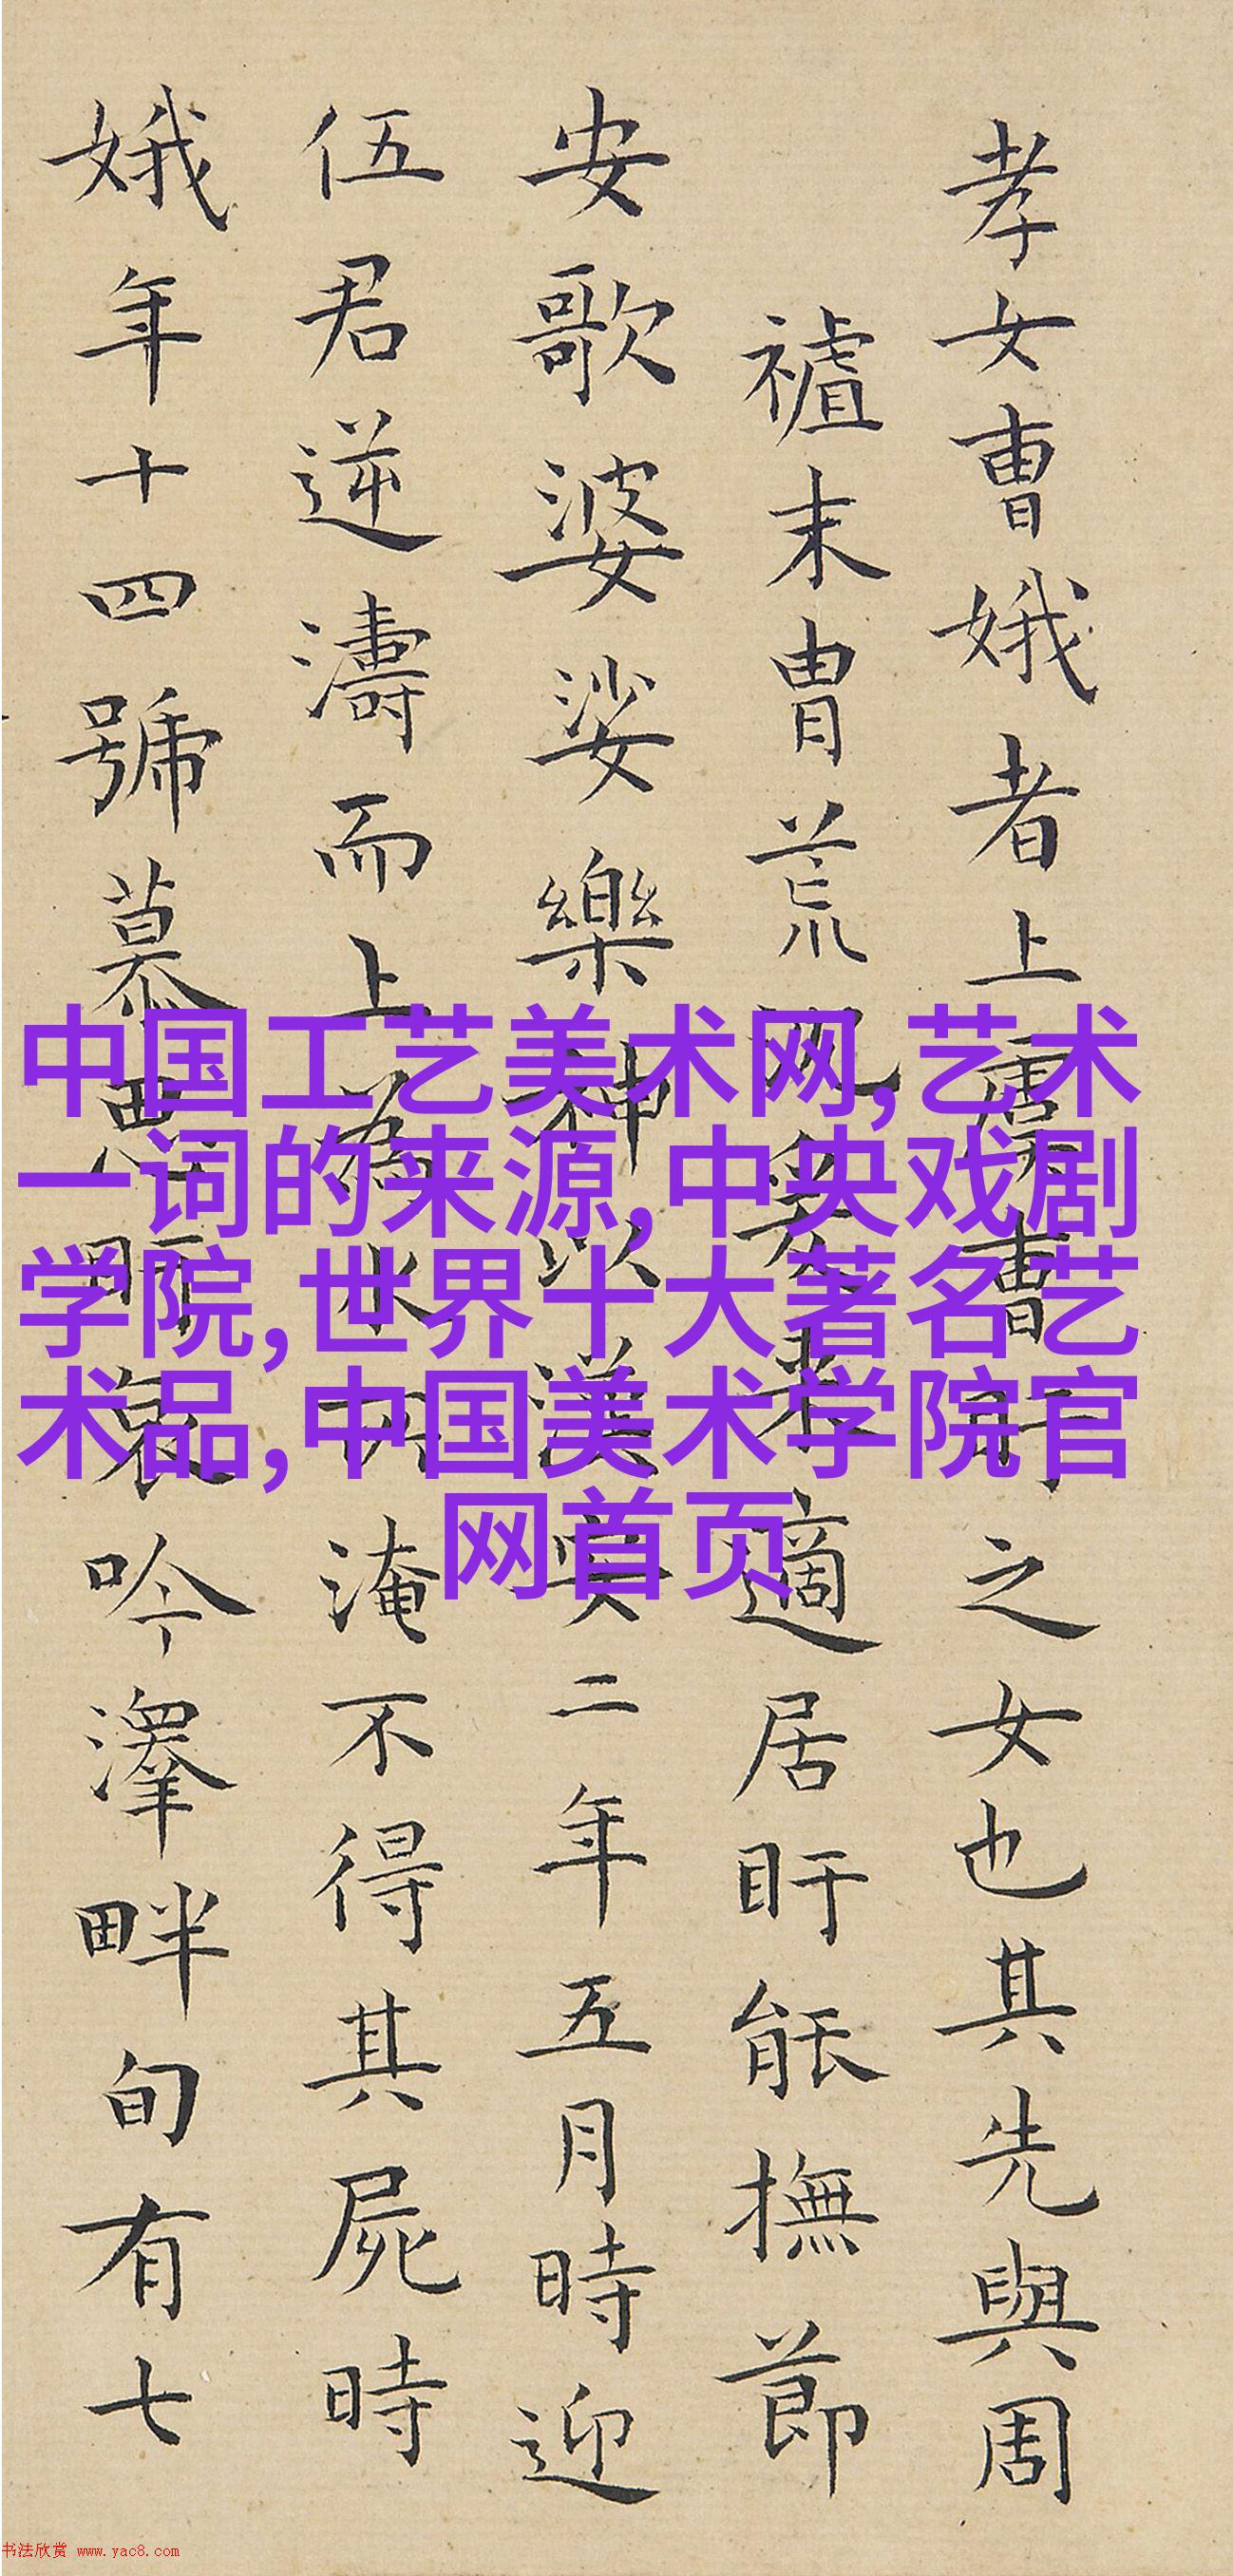 孝女曹娥者上虞曹盱之女也其先與周
禇末胄荒流爰來適居盱能撫節
安歌婆娑樂神以漢安二年五月時迎
伍君逆濤而上為水所淹不得其屍時
娥年十四號慕思盱哀吟澤畔旬有七
中国工艺美术网,艺术
一词的来源,中央戏剧
学院,世界十大著名艺
术品,中国美术学院官
网首页
书法欣赏 www.yac8.com